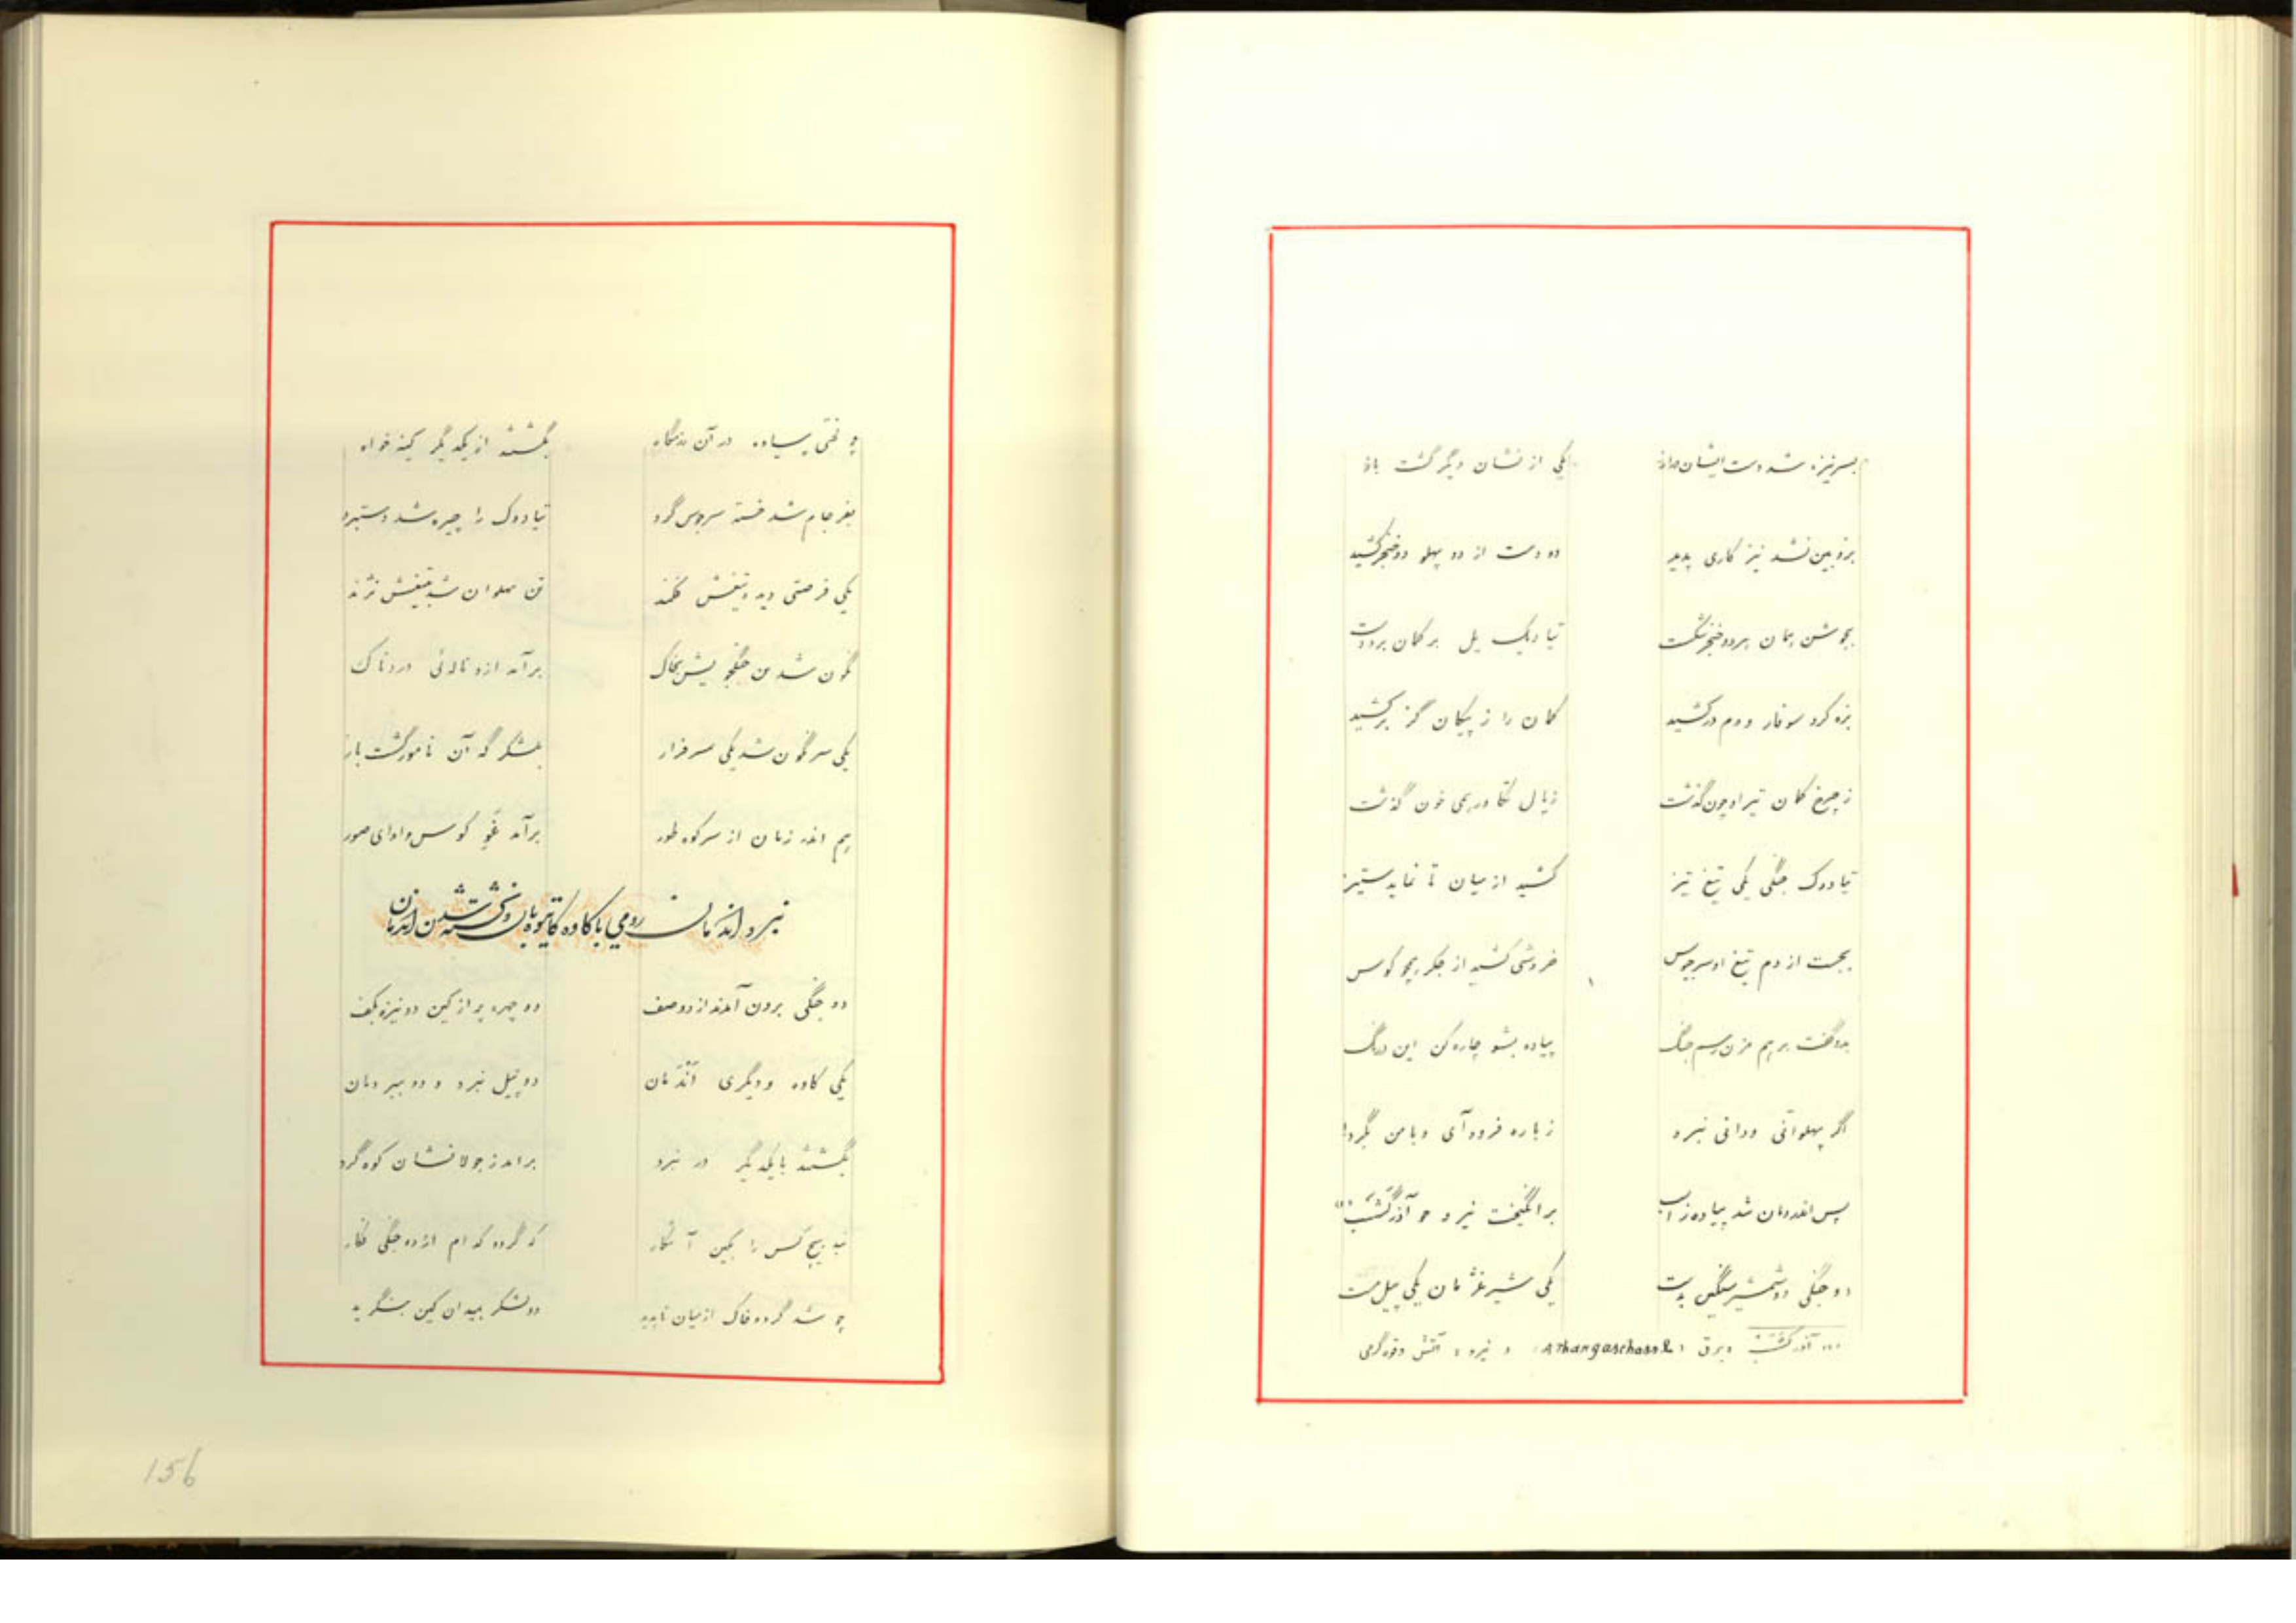 بسر نیزه شد دست ایشان دراز یکی از نشان دیگر گشت باز
بزوبین نشد نیز کاری پدید دو دست از دو پهلو دو خنجر کشید
بجوشن بمان هر دو خنجر شکست تیادیک یل بر کمان برد دست
بزه کرد سوفار و دم درکشید کمان را ز پیکان گز برکشید
ز چرخ کمان تیر او چون گذشت زیال تکاور همی خون گذشت
تیادوک جنگی یکی تیغ تیز کشید از میان تا نماید ستیز
بجست از دم تیغ او سرجوس خروشی کشید از جگر همچو کوس
بدو گفت برهم مزن رسم جنگ پیاده بشو چاره کن این درنگ
اگر پهلوانی و دانی نبرد ز باره فرود آی و با من بگرد
پس اندر دمان شد پیاده ز اسب برانگیخت نیرو چو آذرگشسب
دو جنگی دو شمشیر سنگین بدست یکی شیر غژمان یکی پیل مست
آذرگشسب برق (Athangaschasse) و نیرو، آتش و قوه گرمی
چو لختی پیاده در آن رزمگاه بگشتند از یکدیگر کینه خواه
بفرجام شد خسته سرجوس گرد تیادوک را چیره شد دستبرد
یکی فرصتی دید و تیغش فکند تن پهلوان شد بتیغش نژند
نگون شد تن جنگجویش بخاک برآمد ازو ناله‌ئی دردناک
یکی سرنگون شد یکی سرفراز بلشکرگه آن نامور گشت باز
هم اندر زمان از سر کوه طور برآمد غو کوس و آوای صور
نبرد اندمان رومی با کاوه کاتوه‌بان و کشته شدن اندمان
دو جنگی برون آمدند از دو صف دو چهره پر از کین دو نیزه بکف
یکی کاوه و دیگری اندمان دو پیل نبرد و دو ببر دمان
بگشتند با یکدیگر در نبرد برآمد ز جولانشان کوه گرد
نبد هیچ کس را بکین آشکار که گردد کدام از دو جنگی فکار
چو شد گرد و خاک از میان ناپدید دو لشکر بمیدان کین بنگرید
156